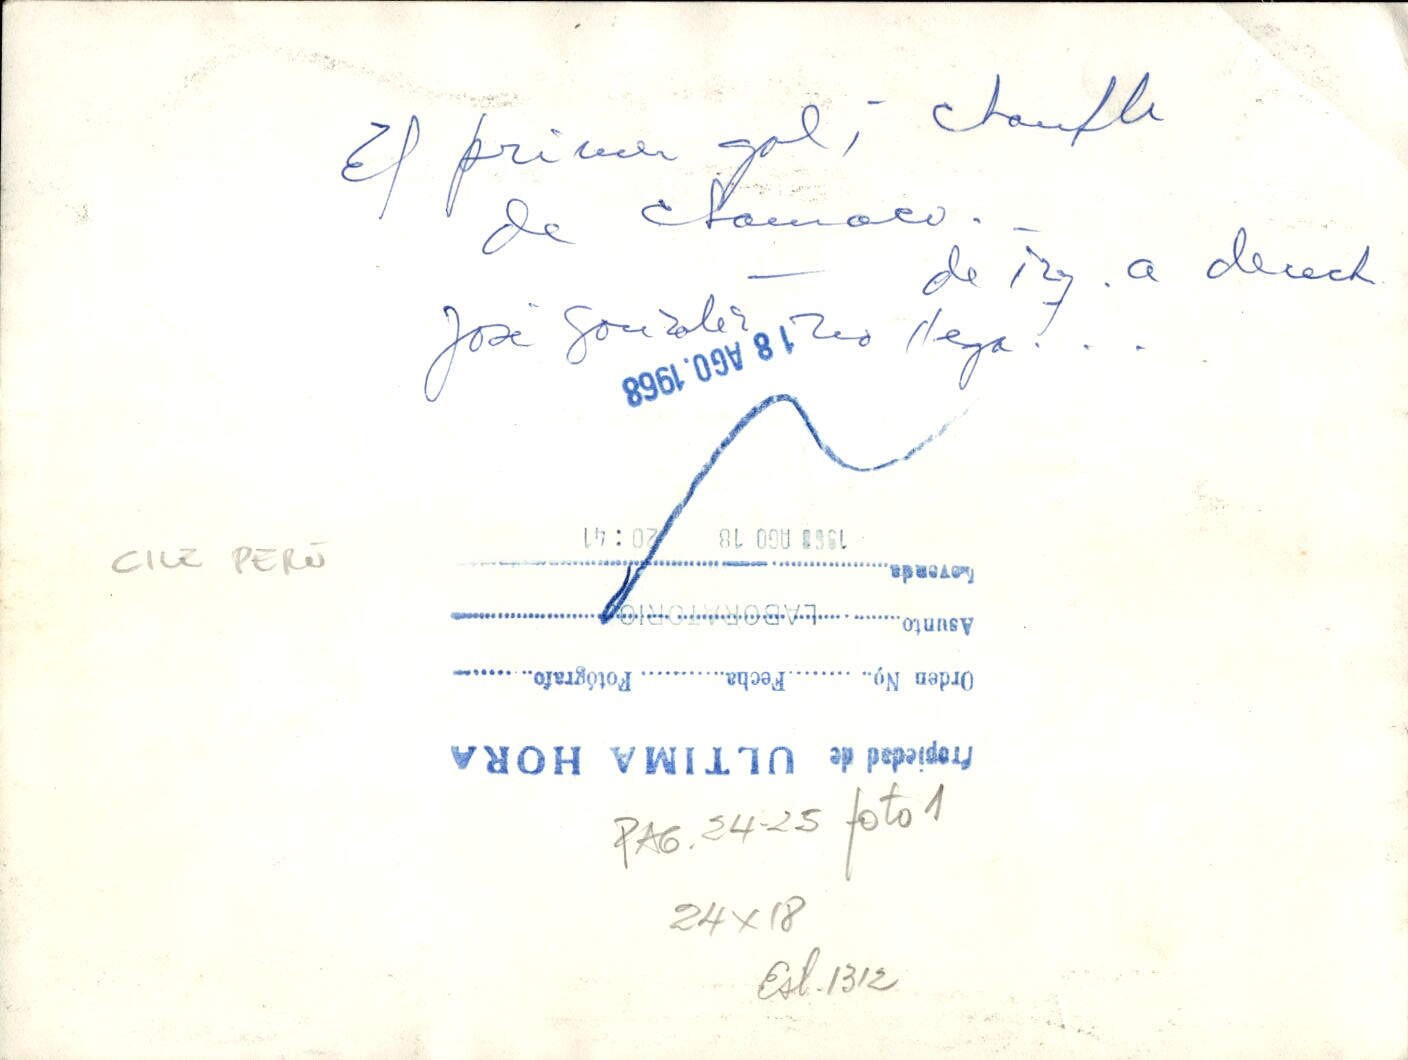 El primer gol, chanfle
de chamaco.
de izq. a derech
José González no llega...
18 AGO. 1968
CILE PERÙ
1968 AGO 18 20:41
Leyenda
LABORATORIO
Asunto
Orden No. Fecha Fotógrafo
Propiedad de ULTIMA HORA
PAG. 24-25 foto 1
24x18
Esl. 1312